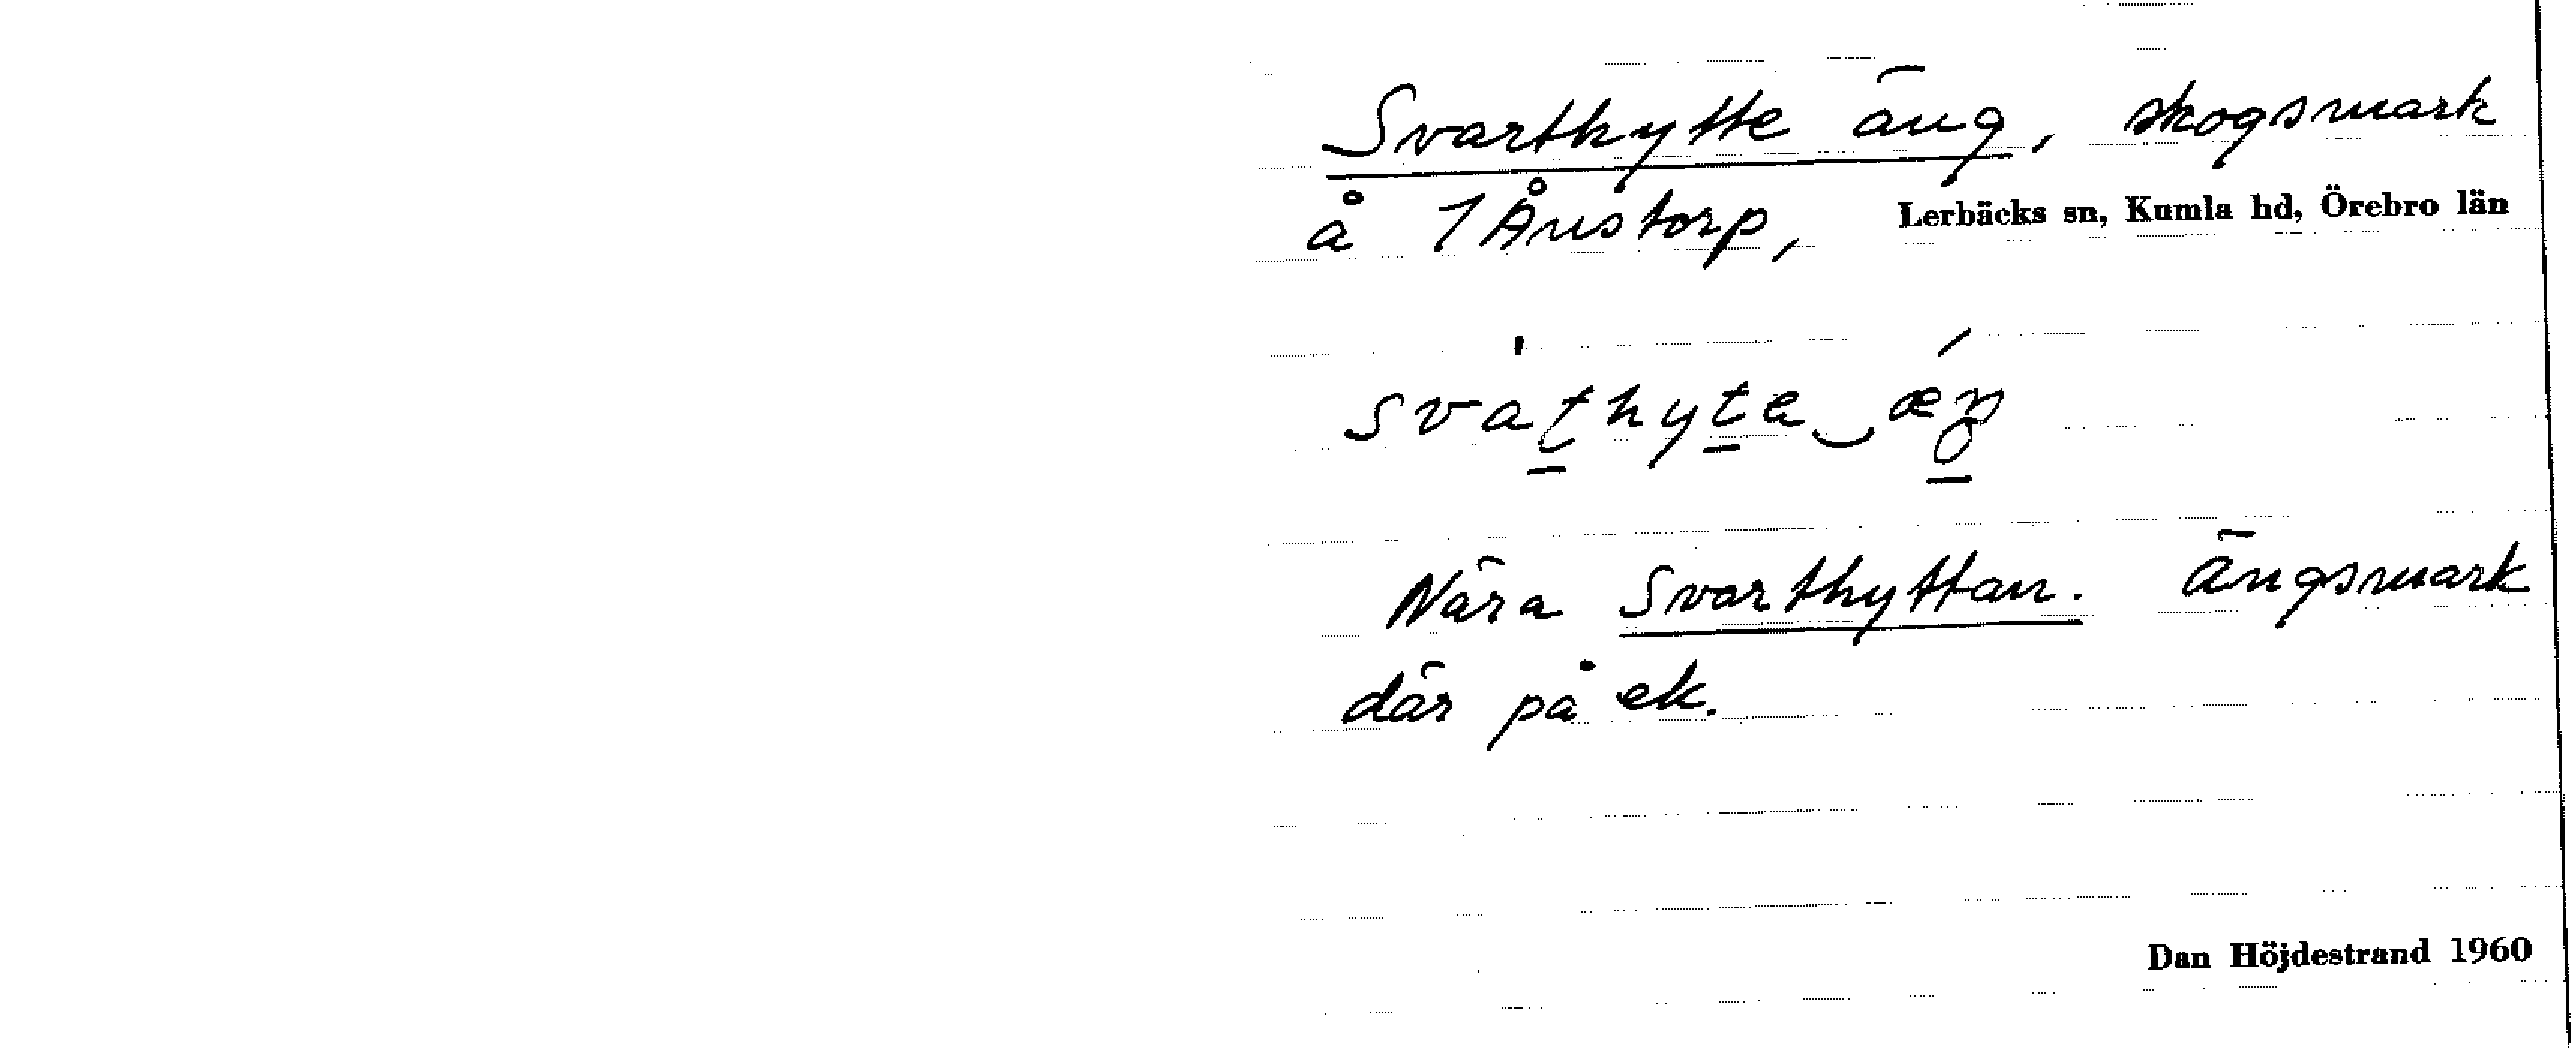 Svarthytte äng, skogsmark
å 1 Ånstorp, Lerbäcks sn, Kumla hd, Örebro län
Nära Svarthyttan. Ängsmark
där på ek.
Dan Höjdestrand 1960